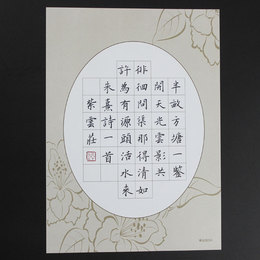 半畝方塘一鑒
開天光雲影共
徘徊問渠那得清如
許為有源頭活水來
朱熹詩一首
紫雲莊